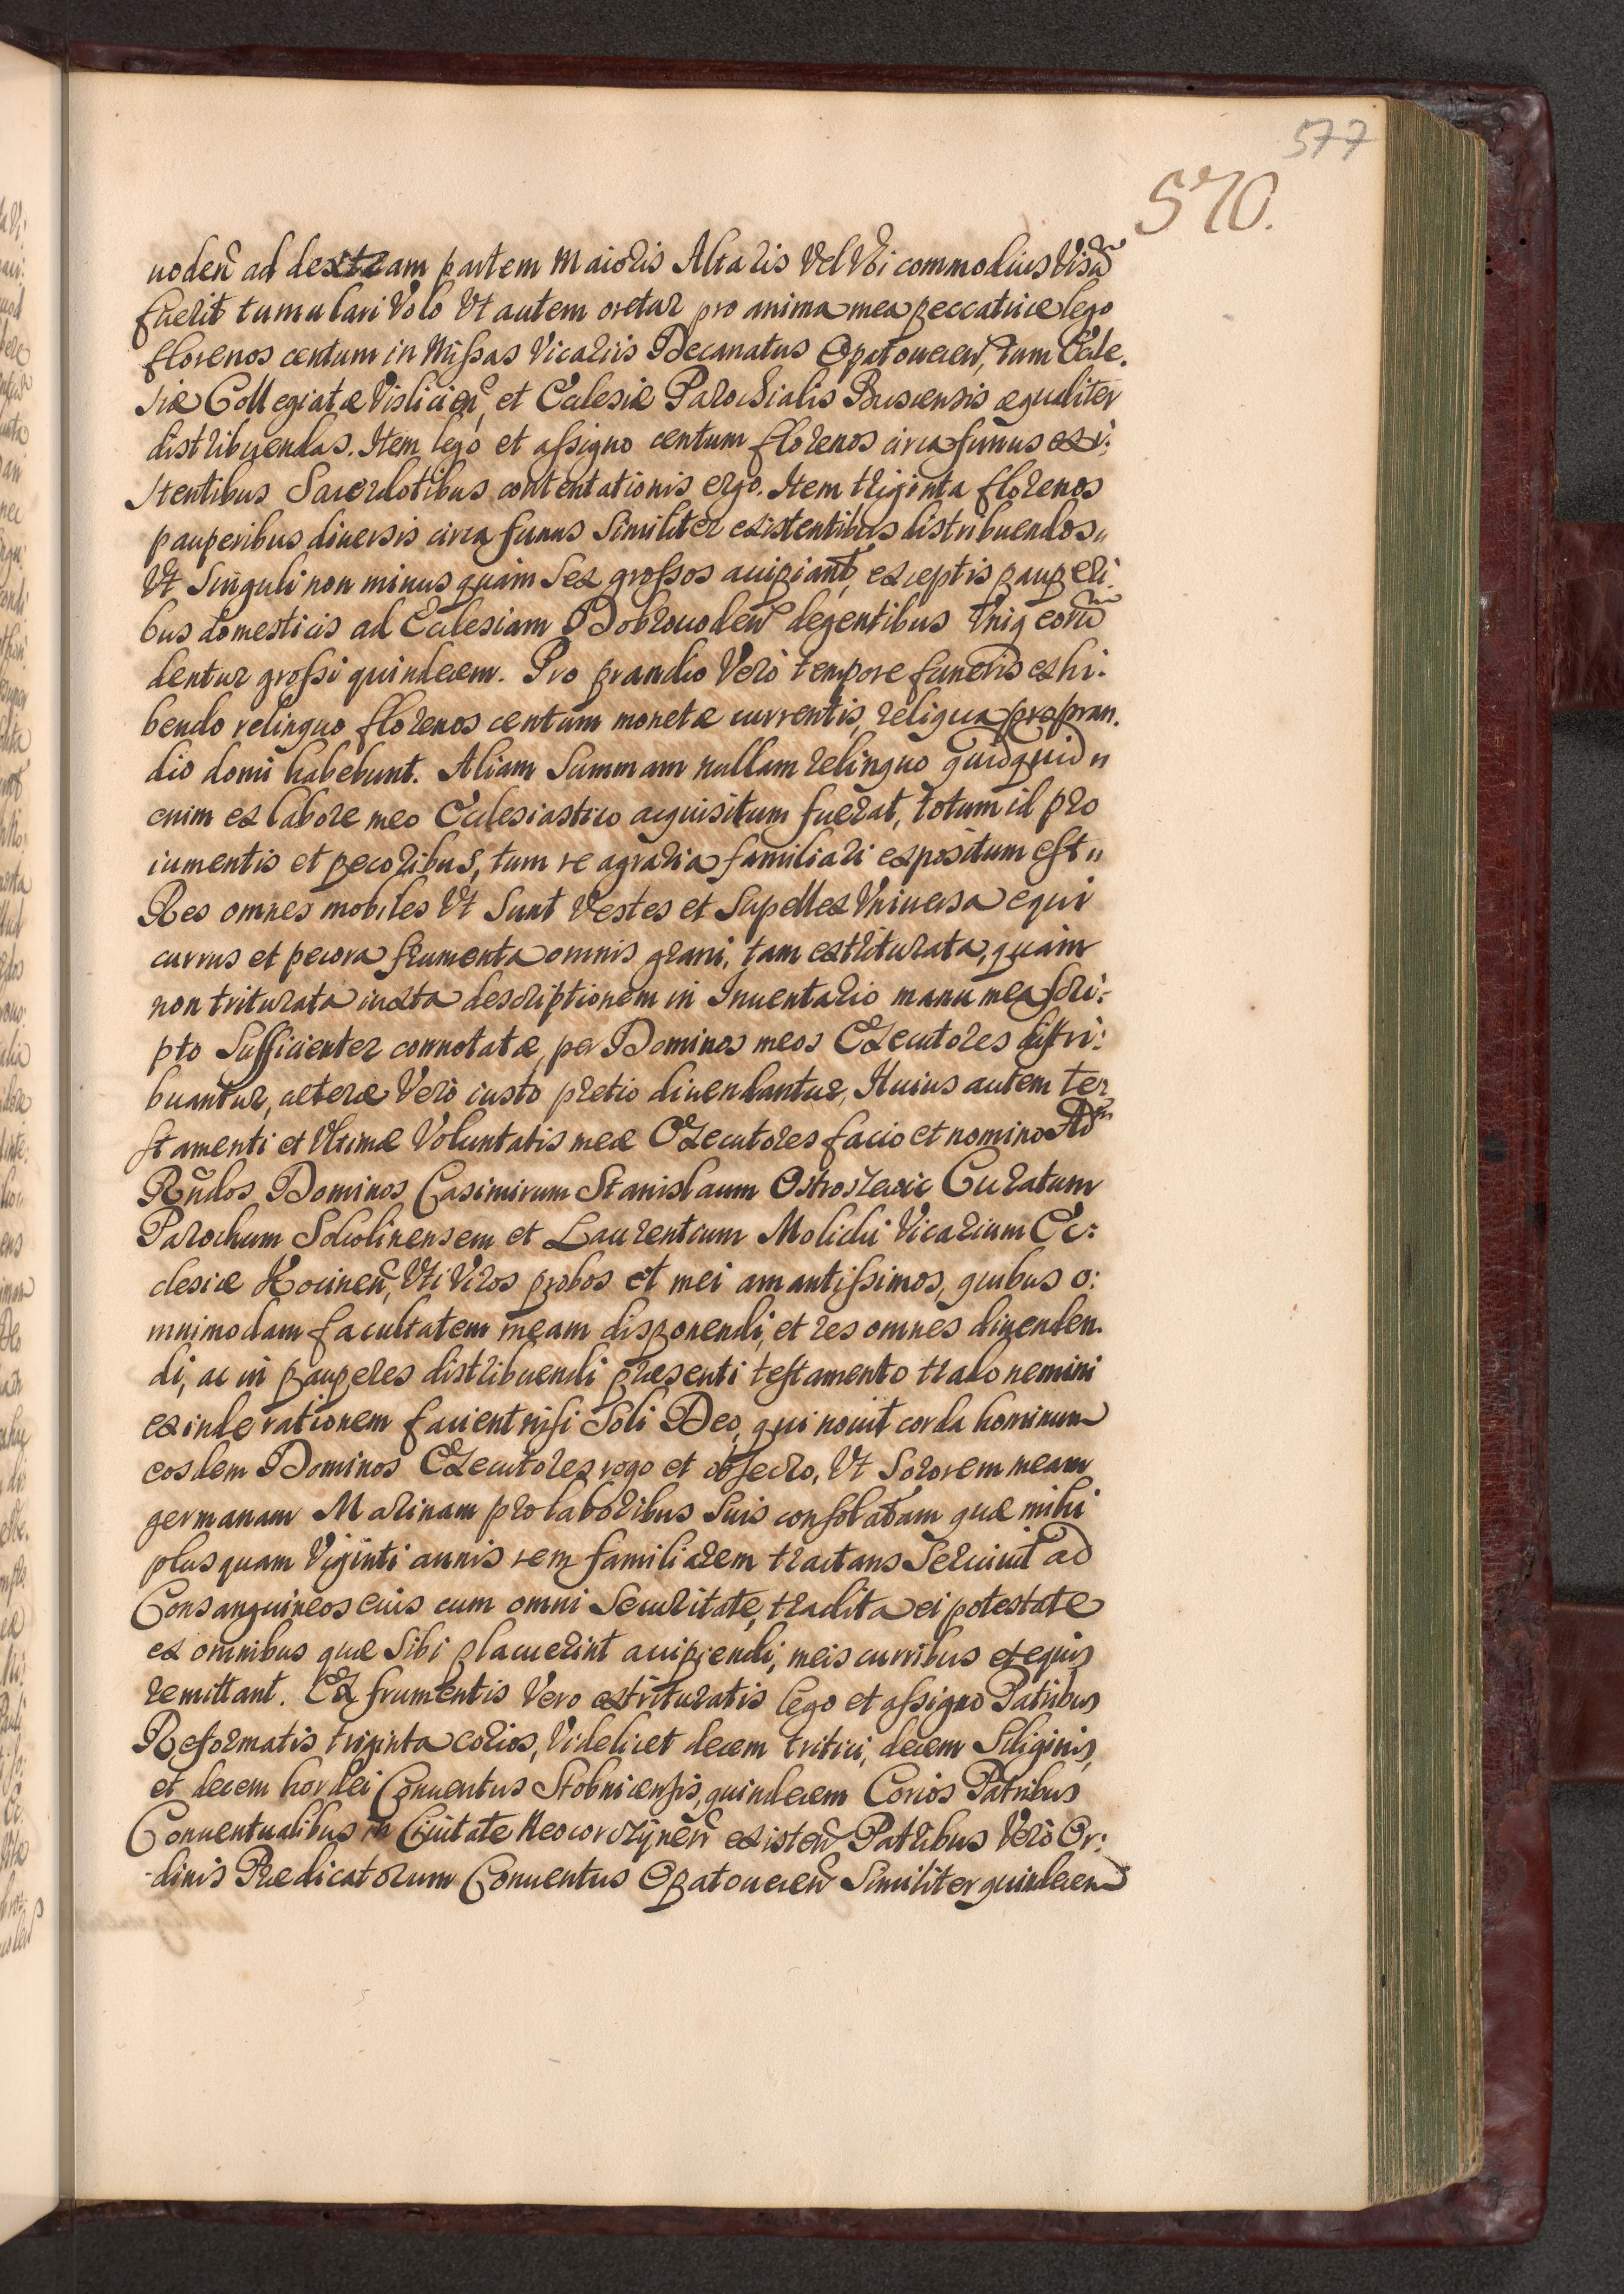 577
570.
uoden̄ ad dextram partem Maioris Altaris Vel Vbi commodius Visū
fuerit tumulari Volo Vt autem oretur pro anima mea peccatrice lego
florenos centum in Missas Vicariis Decanatus Opatouien̄, tum Eccle.
siæ Collegiatæ Visliciēn, et Ecclesiæ Parochialis Buscensis æqualiter
distribuendas. Item lego et assigno centum florenos circa funus exi:
stentibus Sacerdotibus contentationis ergo. Item triginta florenos
pauperibus diuersis circa funus Similiter existentibus distribuendos„
Vt Singuli non minus quàm Sex grossos accipiant, exceptis pauperi.
bus domesticis ad Ecclesiam Dobrouoden̄ degentibus Vniq eorū
dentur grossi quindecem. Pro prandio Verò tempore funeris exhi.
bendo relinquo florenos centum monetæ currentis, reliqua pro pran.
dio domi habebunt. Aliam Summam nullam relinquo quidquid„
enim ex labore meo Ecclesiastico acquisitum fuerat, totum id pro
iumentis et pecoribus, tum re agraria familiari expositum est„
Res omnes mobiles Vt Sunt Vestes et Supellex Vniuersa equi
currus et pecora frumenta omnis grani, tam extriturata, quàm
non triturata iuxta descriptionem in Inuentario manu mea scri:
pto Sufficienter connotatæ, per Dominos meos Executores distri:
buantur, ceteræ Verò iusto pretio diuendantur, Huius autem te
stamenti et Vltimæ Voluntatis meæ Executores facio et nomino Ad
Rn̄dos Dominos Casimirum Stanislaum Curatum
Parochum et Laurentium Vicarium Ec:
clesiæ Vti Viros probos et mei amantissimos, quibus o:
mnimodam facultatem meam disponendi, et res omnes diuenden.
di, ac in pauperes distribuendi præsenti testamento trado nemini
exinde rationem facient nisi Soli Deo, qui nouit corda hominum
eosdem Dominos Executores rogo et obsecro, Vt Sororem meam
germanam Marinam pro laboribus Suis consolatam quæ mihi
plus quam Viginti annis rem familiarem tractans Seruiuit ad
Consanguineos eius cum omni Securitate, tradita ei potestate
ex omnibus quæ Sibi placuerint accipiendi, meis curribus et equis
remittant. Ex frumentis Vero extrituratis lego et assigno Patribus
Reformatis triginta corios, Videlicet decem tritici, decem Siliginis,
et decem hordei Conuentus Stobnicensis, quindecem Corios Patribus
Conuentualibus in Ciuitate Neocorczynen̄ existen̄ Patribus Verò Or:
dinis Prædicatorum Conuentus Opatouien̄ Similiter quindecem